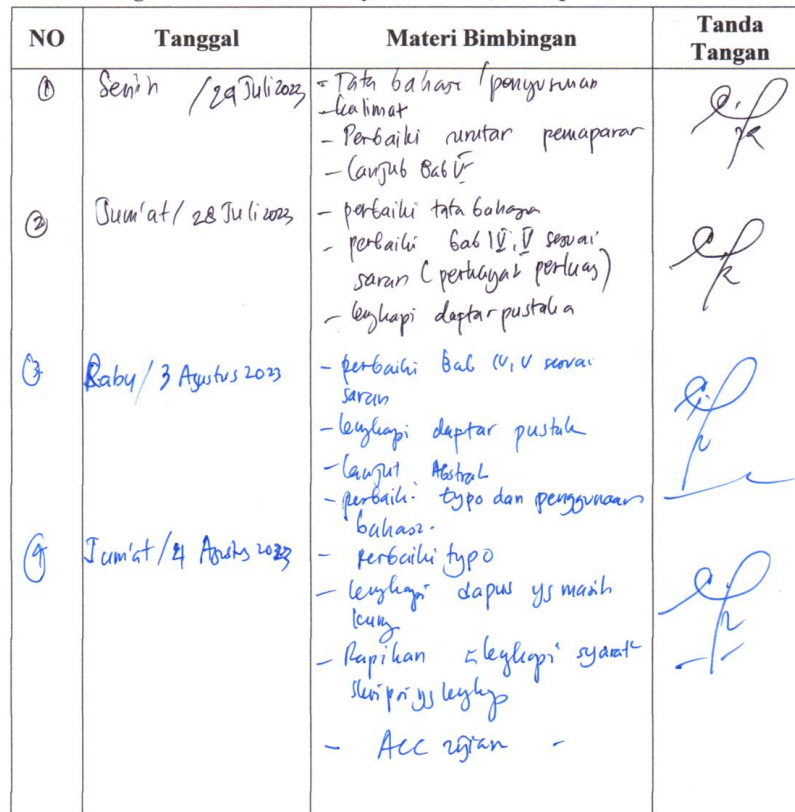 NO Tanggal Materi Bimbingan Tanda Tangan
① Senin / 24 Juli 2023 - Tata bahasa / penyusunan
- kalimat
- Perbaiki urutan pemaparan
- Lanjut Bab V
② Jum'at / 28 Juli 2023 - perbaiki tata bahasa
- perbaiki bab IV, V sesuai
saran (perbanyak perluas)
- lengkapi daftar pustaka
③ Rabu / 3 Agustus 2023 - perbaiki Bab IV, V sesuai
saran
- lengkapi daftar pustak
- lanjut Abstrak
- perbaiki typo dan penggunaan
bahasa.
④ Jum'at / 4 Agustus 2023 - perbaiki typo
- lengkapi dapus yg masih
kurng
- Rapikan lengkapi syarat
skripsi yg lengkp
- ACC ujian -